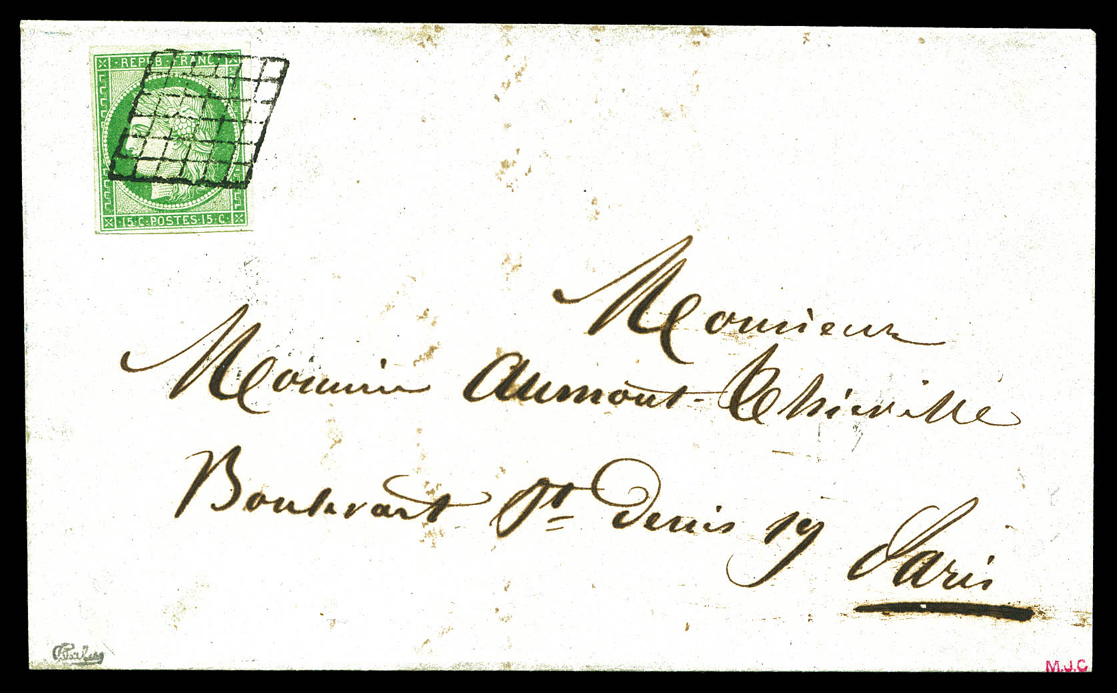 REPUB. FRANC.
15.C.POSTES.15.C.
Monsieur
Monsieur Aumont-Thiéville
Boulevart St Denis 19
Paris
M.J.C